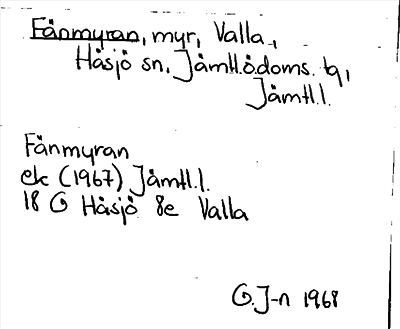 Fånmyran, myr, Valla,
Håsjö sn, Jämtl.ö.doms. tg,
Jämtl.l.
Fånmyran
ek (1967) Jämtl.l.
18 G Håsjö 8e Valla
G.J-n 1968